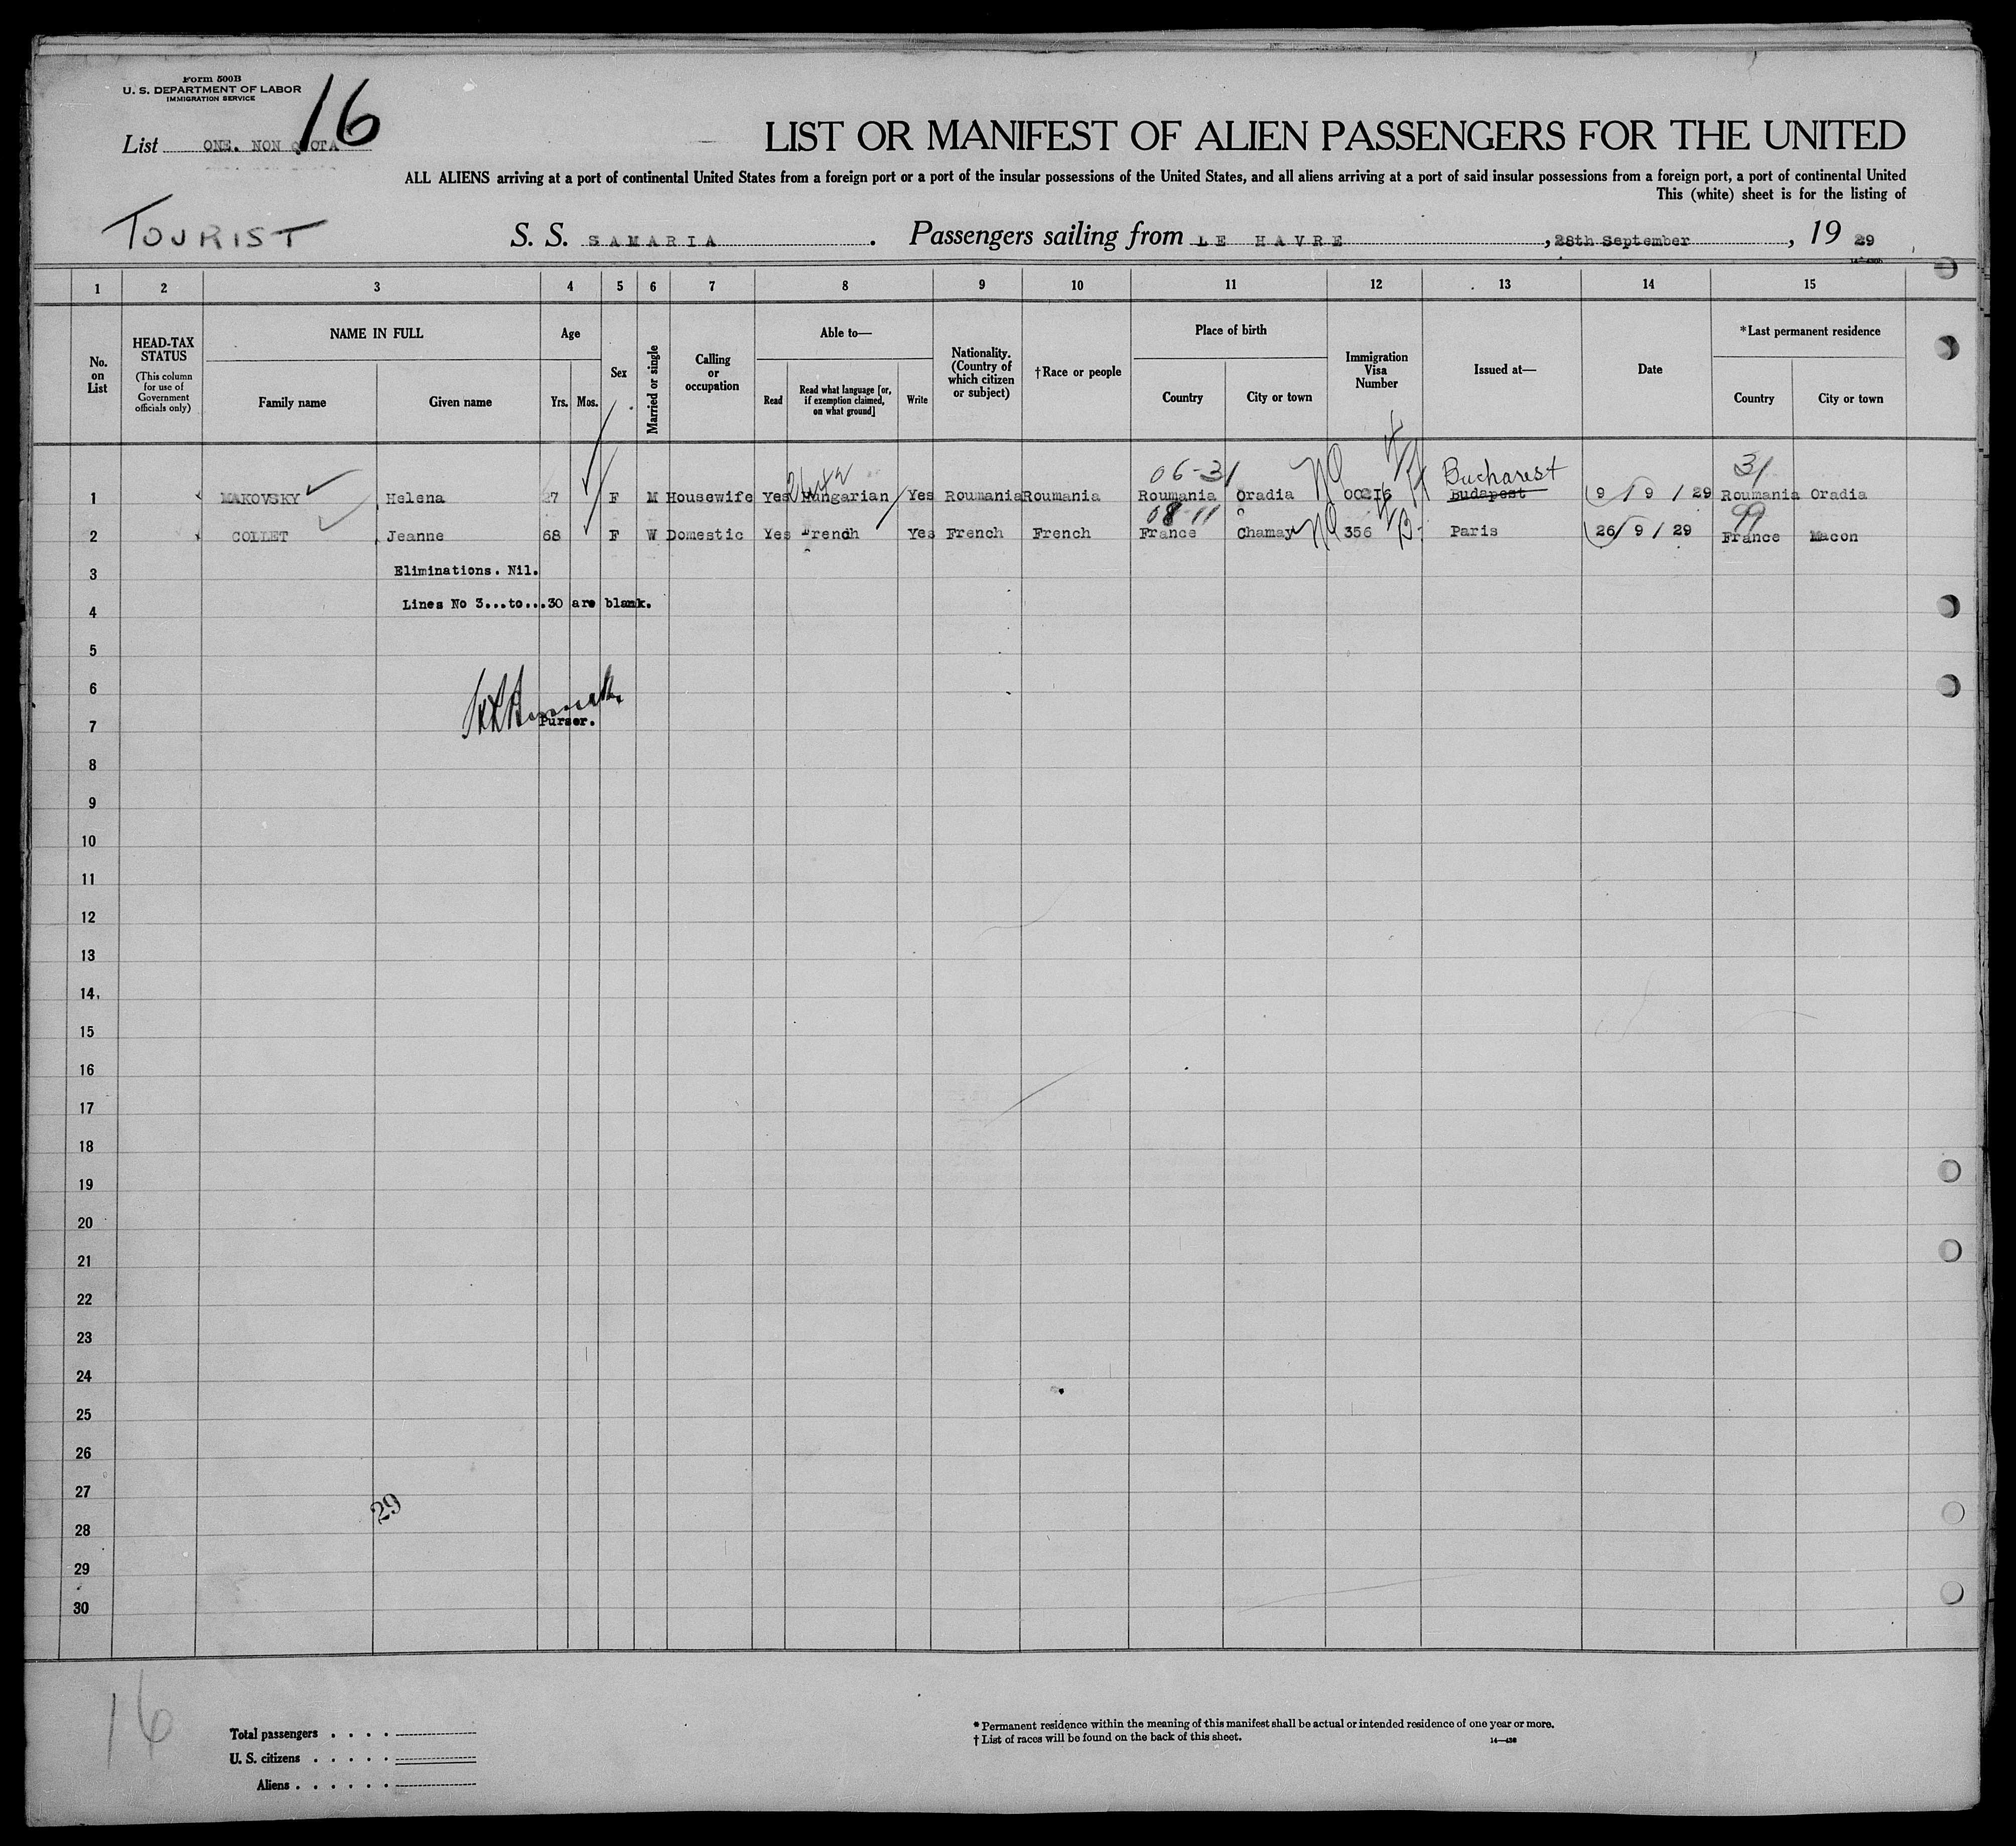 Form 500B
U. S. DEPARTMENT OF LABOR
IMMIGRATION SERVICE
16
List ONE. NON QUOTA
LIST OR MANIFEST OF ALIEN PASSENGERS FOR THE UNITED
ALL ALIENS arriving at a port of continental United States from a foreign port or a port of the insular possessions of the United States, and all aliens arriving at a port of said insular possessions from a foreign port, a port of continental United
This (white) sheet is for the listing of
TOURIST
S. S. SAMARIA. Passengers sailing from LE HAVRE, 28th September, 19 29
1 2 3 4 5 6 7 8 9 10 11 12 13 14 15
No. on List
HEAD-TAX STATUS
(This column for use of Government officials only)
NAME IN FULL
Family name Given name
Age
Yrs. Mos.
Sex
Married or single
Calling or occupation
Able to—
Read
Read what language [or, if exemption claimed, on what ground]
Write
Nationality. (Country of which citizen or subject)
†Race or people
Place of birth
Country City or town
Immigration Visa Number
Issued at—
Date
*Last permanent residence
Country City or town
06-31 Bucharest 31
1 MAKOVSKY Helena 27 F M Housewife Yes Hungarian Yes Roumania Roumania Roumania Oradia NQ 00216 Budapest 9 / 9 / 29 Roumania Oradia
08-11 99
2 COLLET Jeanne 68 F W Domestic Yes French Yes French French France Chamay NQ 356 Paris 26/ 9 / 29 France Macon
3 Eliminations. Nil.
4 Lines No 3...to...30 are blank.
5
6
7 Purser.
8
9
10
11
12
13
14
15
16
17
18
19
20
21
22
23
24
25
26
27
29
28
29
30
16
Total passengers
U. S. citizens
Aliens
* Permanent residence within the meaning of this manifest shall be actual or intended residence of one year or more.
† List of races will be found on the back of this sheet.
14—438